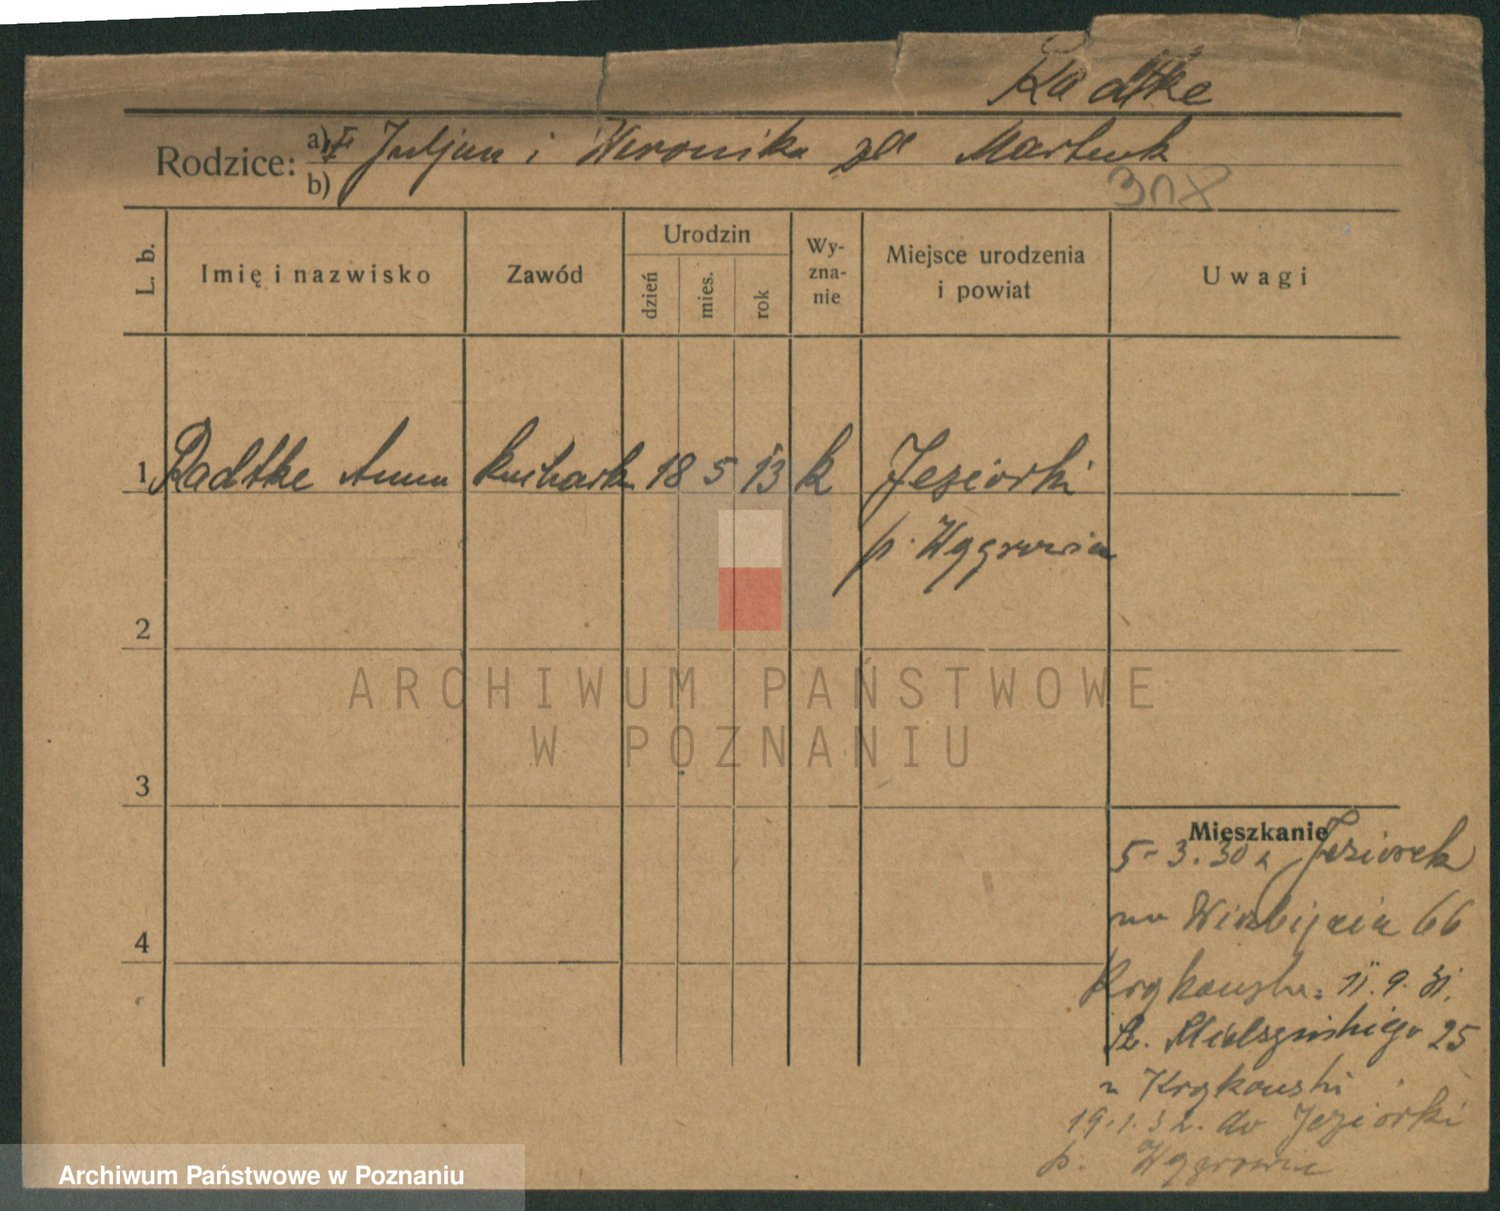 Radtke
Rodzice: a) Juljan i Weronika zd Martenk
b)
L. b.
Imię i nazwisko
Zawód
Urodzin
dzień
mies.
rok
Wy-
zna-
nie
Miejsce urodzenia
i powiat
Uwagi
1 Radtke Anna kucharka 18 5 13 k Jeziorki
p. Wągrowiec
2
3
4
Mieszkanie
5-3.30 z Jeziorek
na 66
11.9.31.
Mielżyńskiego 25
19.1.32. do Jeziorki
p. Wągrowiec
ARCHIWUM PAŃSTWOWE
W POZNANIU
Archiwum Państwowe w Poznaniu